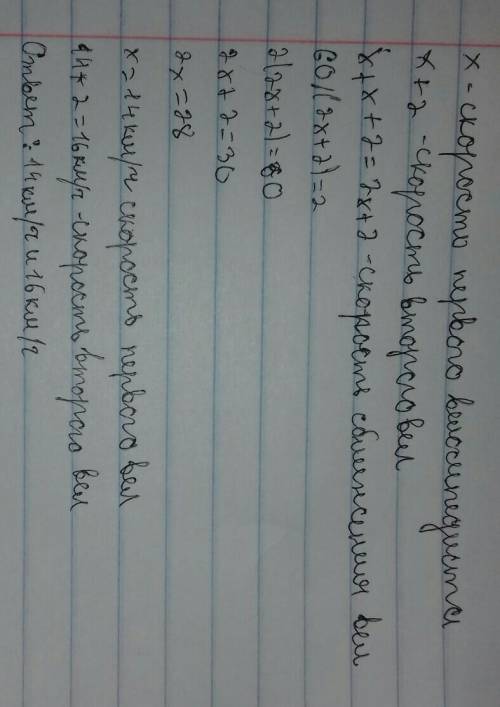 x - скорость первого велосипедиста
x + 2 - скорость второго вел
x + x + 2 = 2x + 2 - скорость сближения вел
60/(2x+2) = 2
2(2x+2) = 60
2x + 2 = 30
2x = 28
x = 14 км/ч скорость первого вел
14 + 2 = 16 км/ч - скорость второго вел
Ответ: 14 км/ч и 16 км/ч